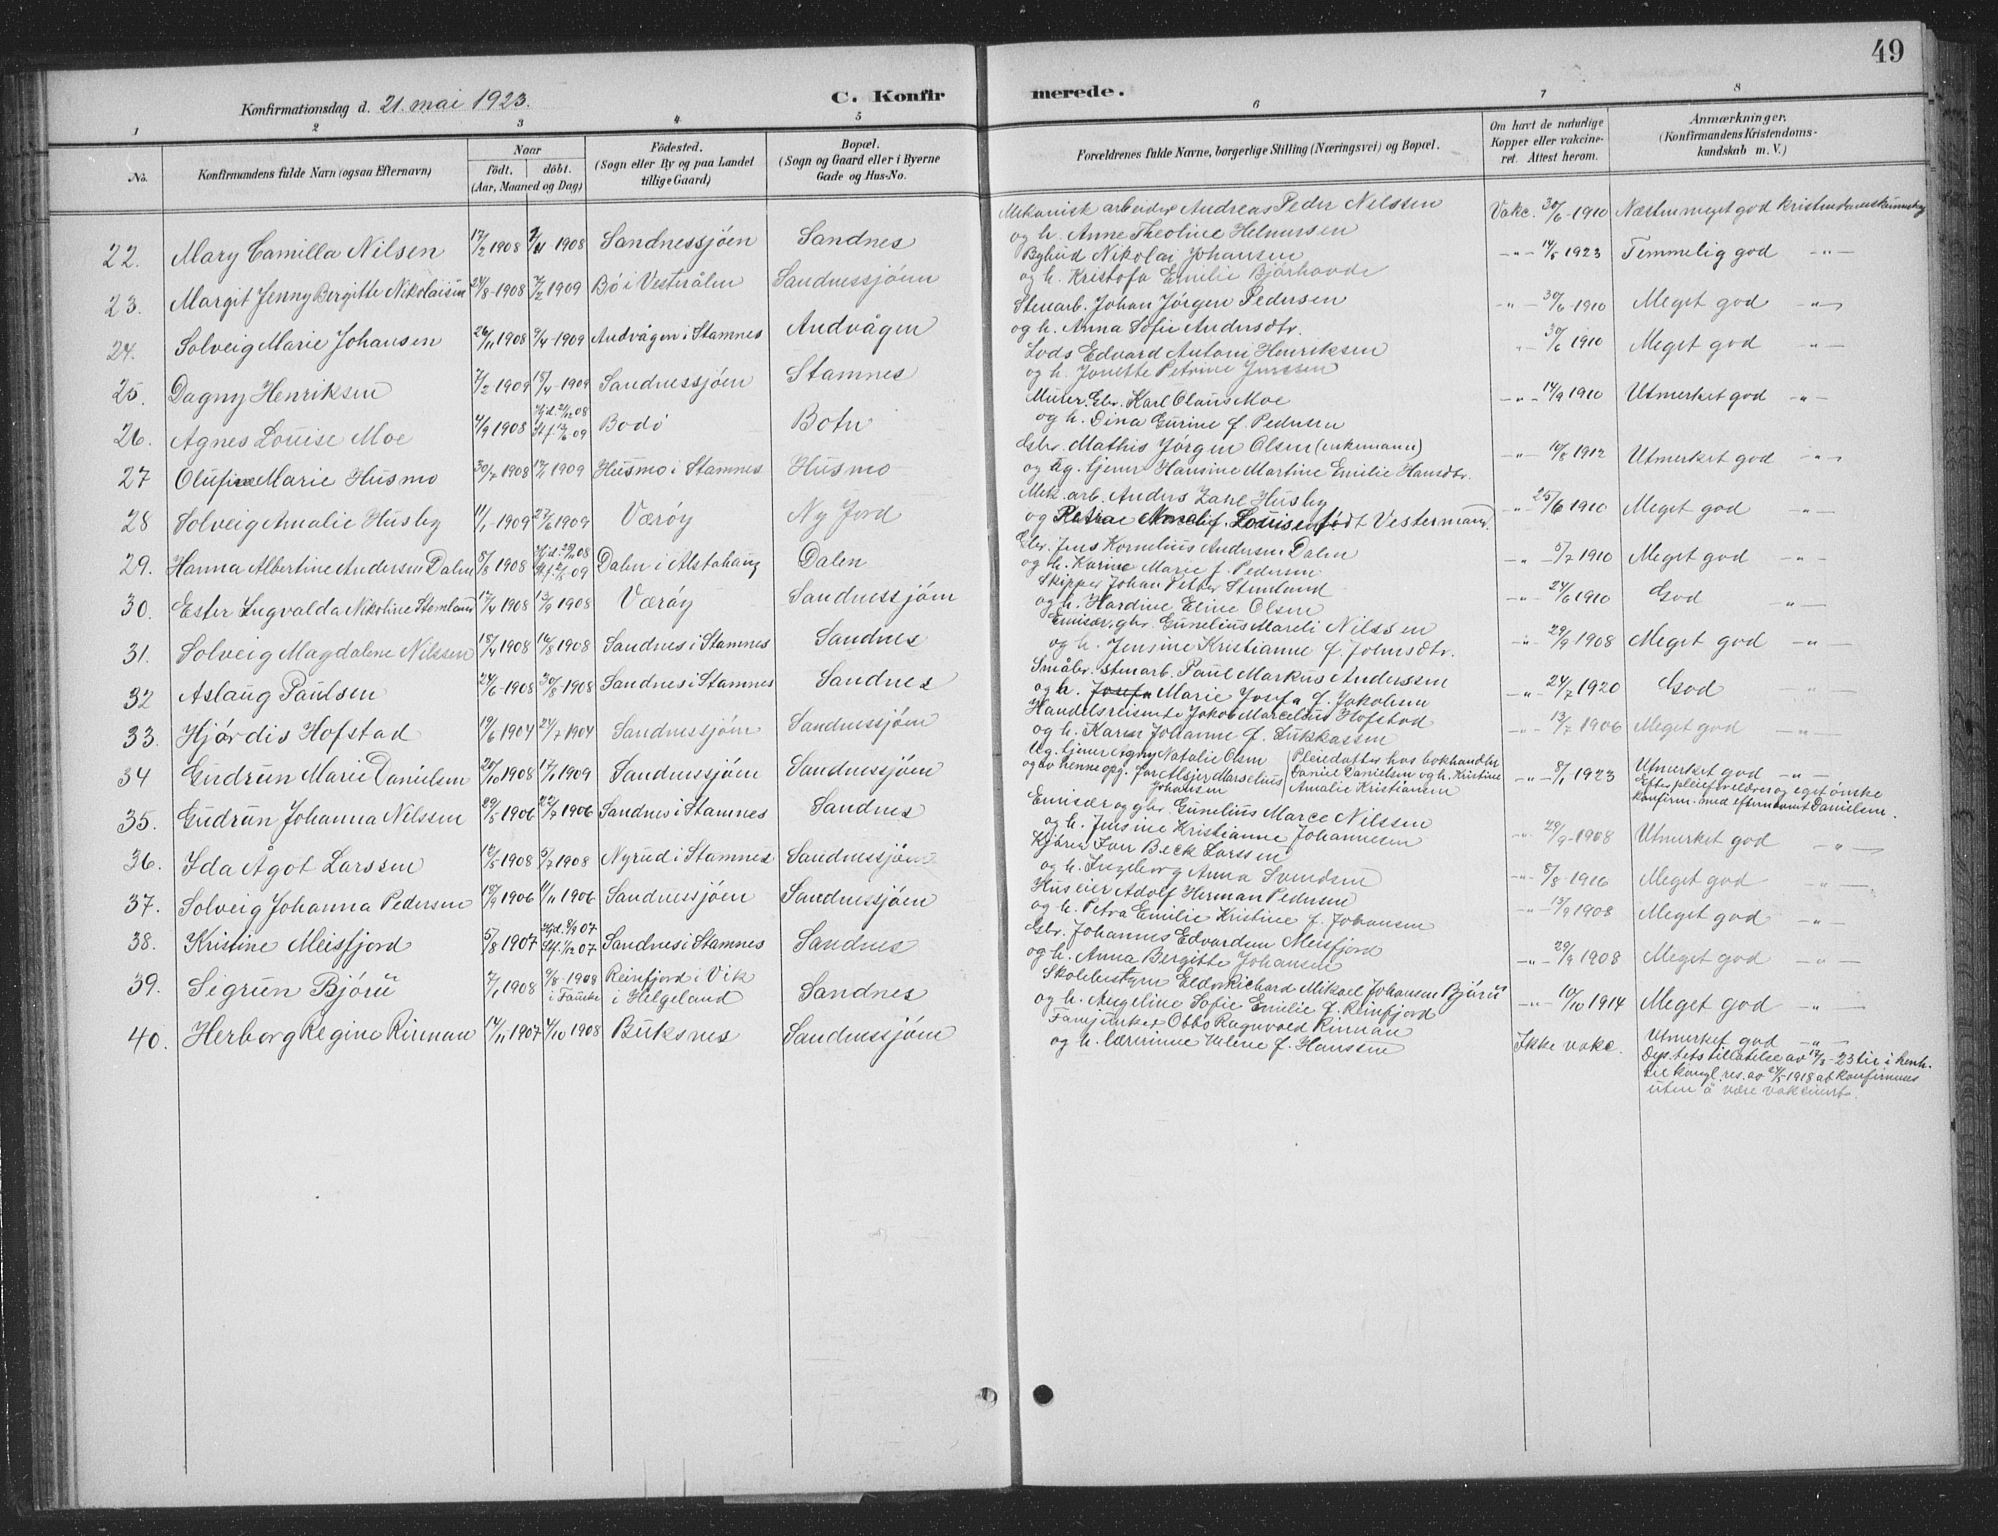 49
Konfirmationsdag d. 21. mai 1923.
C. Konfirmerede.
1 2 3 4 5 6 7 8
No.
Konfirmandens fulde Navn (ogsaa Efternavn)
Naar
født. døbt.
(Aar, Maaned og Dag)
Fødested.
(Sogn eller By og paa Landet
tillige Gaard)
Bopæl.
(Sogn og Gaard eller i Byerne
Gade og Hus-No.
Forældrenes fulde Navne, borgerlige Stilling (Næringsvei) og Bopæl.
Om havt de naturlige
Kopper eller vakcine-
ret. Attest herom.
Anmærkninger.
(Konfirmandens Kristendoms-
kundskab m. V.)
Mekanisk arbeider Andreas Peder Nilssen Vakc. 30/6-1910 Næsten meget god
22. Mary Camilla Nilsen 17/2 1908 1908 Sandnessjöen Sandnes
og h. Anne Theoline
23. Margit Jenny Bergitte 24/8-1908 7/2 1909 Bö i Vesterålen Sandnessjöen
Nikolai Johansen -"- 14/5 1923 Temmelig god -"-
og h. Kristofa Emilie
24. Solveig Marie Johansen 26/11 1908 9/4-1909 Andvågen i Stamnes Andvågen
Stenarb. Johan Jörgen Pedersen -"- 30/6-1910 Meget god -"-
og h. Anna Sofie Andersdtr.
25. Dagny Henriksen 7/2 1909 18/4-1909 Sandnessjöen Stamnes
Lods Edvard Antoni Henriksen -"- 30/6 1910 Meget god -"-
og h. Jonette Petrine
26. Agnes Louise Moe 4/9 1908 Bodö Botn
Murer. Gbr. Karl Olaus Moe -"- 14/9 1910 Utmerket god -"-
og h. Dina Gurine f. Pedersen
27 Olufine Marie Husmo 30/7 1908 17/1 1909 Husmo i Stamnes Husmo
Gbr. Mathis Jörgen Olsen (enkemann) -"- 1912 Utmerket god -"-
og ug. tjener Hansine Martine Emilie Hansdtr.
28 Solveig Amalie Husby 11/1-1909 27/6 1909 Værøy Ny Jord
Mek. arb. Anders Husby 25/6 1910 Meget god -"-
og Louise född Vestermann.
29. Hanna Albertine Andersen Dalen 8/8 1908 Dalen i Alstahaug Dalen
Gbr. Jens Kornelius Andersen Dalen -"- 5/7 1910 Meget god -"-
og h. Karine Marie f. Pedersen
30. Ester Ingvalda Nikoline 17/4 1908 13/9 1908 Værøy Sandnessjöen
Skipper Johan Petter -"- 24/6 1910 God -"-
og h. Hardine Eline Olsen
31. Solveig Magdalene Nilssen 18/4 1908 16/8 1908 Sandnes i Stamnes Sandnes
Emisær. gbr. Gunelius Nilssen -"- 29/9 1908 Meget god -"-
og h. Jensine Kristianne f. Johnsdtr.
32 Aslaug Paulsen 24/6-1908 30/8 1908 Sandnes i Stamnes Sandnes
Småbr. stenarb. Paul Markus Anderssen -"- 24/7 1920 God -"-
og h. Marie Josefa f. Jakobsen
33. Hjördis Hofstad 19/6 1904 24/7 1904 Sandnessjöen Sandnessjöen
Handelsreisende Jakob Marcelius Hofstad -"- 13/7 1906 Meget god -"-
og h. Karen Johanne f. Lukkassen
34 Gudrun Marie Danielsen 20/10 1908 17/1 1909 Sandnessjöen Sandnessjöen
Ug. tjener Agny Natalie Olsen Pleiedatter hos bokhandler -"- 8/1 1923 Utmerket god -"-
og Marselius Johansen Daniel Danielsen og h. Kristine Amalie Kristiansen
Efter pleieforeldres og eget önske
konfirm. med efternavnet Danielsen.
35. Gudrun Johanna Nilssen 29/5 1906 22/7 1906 Sandnes i Stamnes Sandnes
Emisær og gbr. Gunelius Nilssen -"- 29/9-1908 Utmerket god -"-
og h. Jensine Kristianne Johannesen
36. Ida Ågot Larssen 12/5 1908 5/7 1908 Nyrud i Stamnes Sandnessjöen
Iver Beck Larssen -"- 8/8-1916 Meget god -"-
og h. Ingeborg Anna Svendsen
37. Solveig Johanna Pedersen 18/9 1906 11/11 1906 Sandnessjöen Sandnessjöen
Huseier Adolf Herman Pedersen -"- 13/9 1908 Meget god -"-
og h. Petra Emilie Kristine f. Johansen
38. Kristine Meisfjord 5/8 1907 Sandnes i Stamnes Sandnes
Gbr. Johannes Edvardsen Meisfjord -"- 29/9 1908 Meget god -"-
og h. Anna Bergitte Johansen
39. Sigrun Björu 7/1 1908 9/8-1908 i Fauske Reinfjord i Vik i Helgeland Sandnes
Skolebestyrer Richard Mikael Johansen Björu -"- 10/10 1914 Meget god -"-
og h. Angeline Sofie Emilie f. Reinfjord
40. Herborg Regine Rinnan 14/11 1907 4/10 1908 Buksnes Sandnessjöen
Fanejunker Otto Ragnvald Rinnan Ikke vakc. Utmerket god -"-
og h. lærerinne Helene f. Hanssen
Dep.tets tillatelse av 17/3-23 til i henh.
til kongl. res. av 1918 at konfirmeres
uten å være vaksinert.